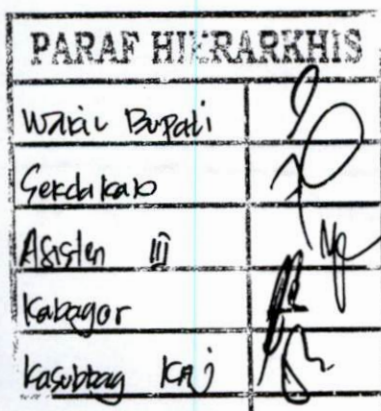 PARAF HIERARKHIS
Wakil Bupati
Sekdakab
Asisten III
Kabagor
Kasubbag